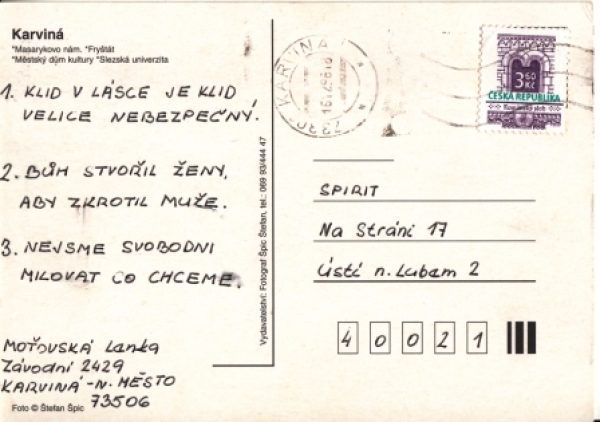 Karviná
*Masarykovo nám. *Fryštát
*Městský dům kultury *Slezská univerzita
1. KLID V LÁSCE JE KLID
VELICE NEBEZPEČNÝ.
2. BŮH STVOŘIL ŽENY,
ABY ZKROTIL MUŽE.
3. NEJSME SVOBODNI
MILOVAT CO CHCEME.
MOŤOVSKÁ Lanka
Závodní 2429
KARVINÁ-N. MĚSTO
73506
Foto © Štefan Špic
Vydavatelství: Fotograf Špic Štefan, tel.: 069 93/444 47
KARVINÁ
3 60
KČ
ČESKÁ REPUBLIKA
SPIRIT
Na Stráni 17
Ústí n. Labem 2
40021